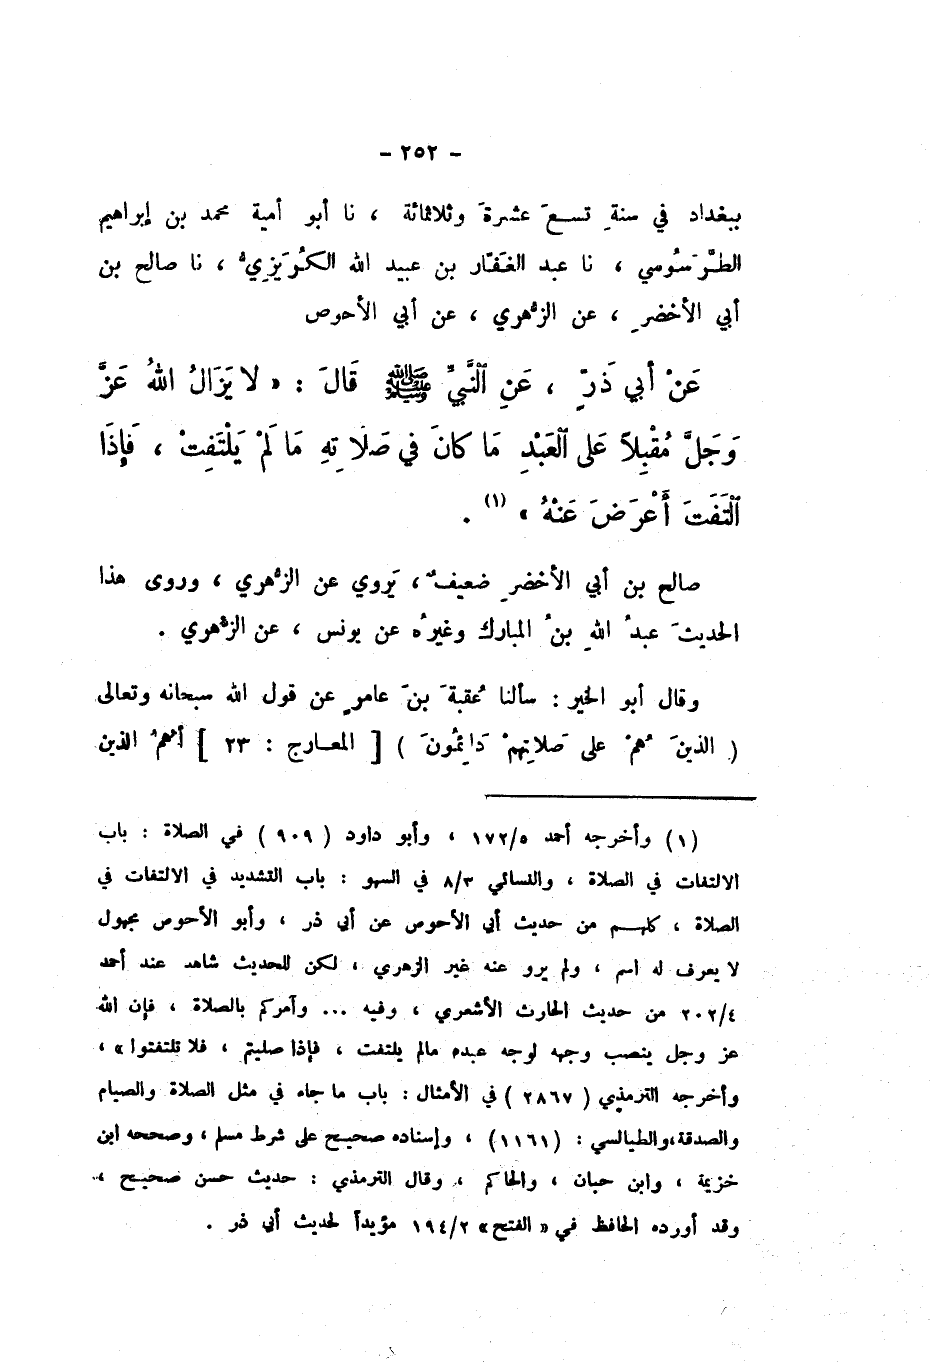 - ٢٥٢ -
ببغداد في سنةِ تسعَ عشرةَ وثلاثمائة ، نا أبو أمية محمد بن إبراهيم
الطَّرَسُوسي ، نا عبد الغَفّار بن عبيد الله الكُرَيزيُ ، نا صالح بن
أبي الأخضرِ ، عن الزُهري ، عن أبي الأحوص
عَنْ أَبي ذَرٍّ ، عَنِ ٱلنَّبيِّ ﷺ قَالَ : « لا يَزَالُ اللهُ عَزَّ
وَجَلَّ مُقْبِلاً عَلى ٱلعَبْدِ مَا كانَ في صَلَاتِهِ مَا لَمْ يَلْتَفِتْ ، فَإِذَا
ٱلْتَفَتَ أَعْرَضَ عَنْهُ » (١) .
صالح بن أبي الأخضرِ ضعيفٌ ، يَروي عن الزُهري ، وروى هذا
الحديثَ عبدُ اللهِ بنُ المبارك وغيرُه عن يونس ، عن الزُهوي .
وقال أبو الخير : سألنا عُقبةَ بنَ عامرٍ عن قول الله سبحانه وتعالى
( الذينَ هُمْ على صَلاتِهمْ دَائِمُونَ ) [ المعارج : ٢٣ ] أهُمُ الذين
(١) وأخرجه أحمد ١٧٢/٥ ، وأبو داود ( ٩٠٩ ) في الصلاة : باب
الالتفات في الصلاة ، والنسائي ٨/٣ في السهو : باب التشديد في الالتفات في
الصلاة ، كلهم من حديث أبي الأحوص عن أبي ذر ، وأبو الأحوص مجهول
لا يعرف له اسم ، ولم يرو عنه غير الزهري ، لكن للحديث شاهد عند أحمد
٢٠٢/٤ من حديث الحارث الأشعري ، وفيه ... وآمركم بالصلاة ، فإن الله
عز وجل ينصب وجهه لوجه عبده مالم يلتفت ، فإذا صليتم ، فلا تلتفتوا » ،
وأخرجه الترمذي ( ٢٨٦٧ ) في الأمثال : باب ما جاء في مثل الصلاة والصيام
والصدقة ، والطيالسي : (١١٦١) ، وإسناده صحيح على شرط مسلم ، وصححه ابن
خزيمة ، وابن حبان ، والحاكم ، وقال الترمذي : حديث حسن صحيح ،
وقد أورده الحافظ في « الفتح » ١٩٤/٢ مؤيداً لحديث أبي ذر .